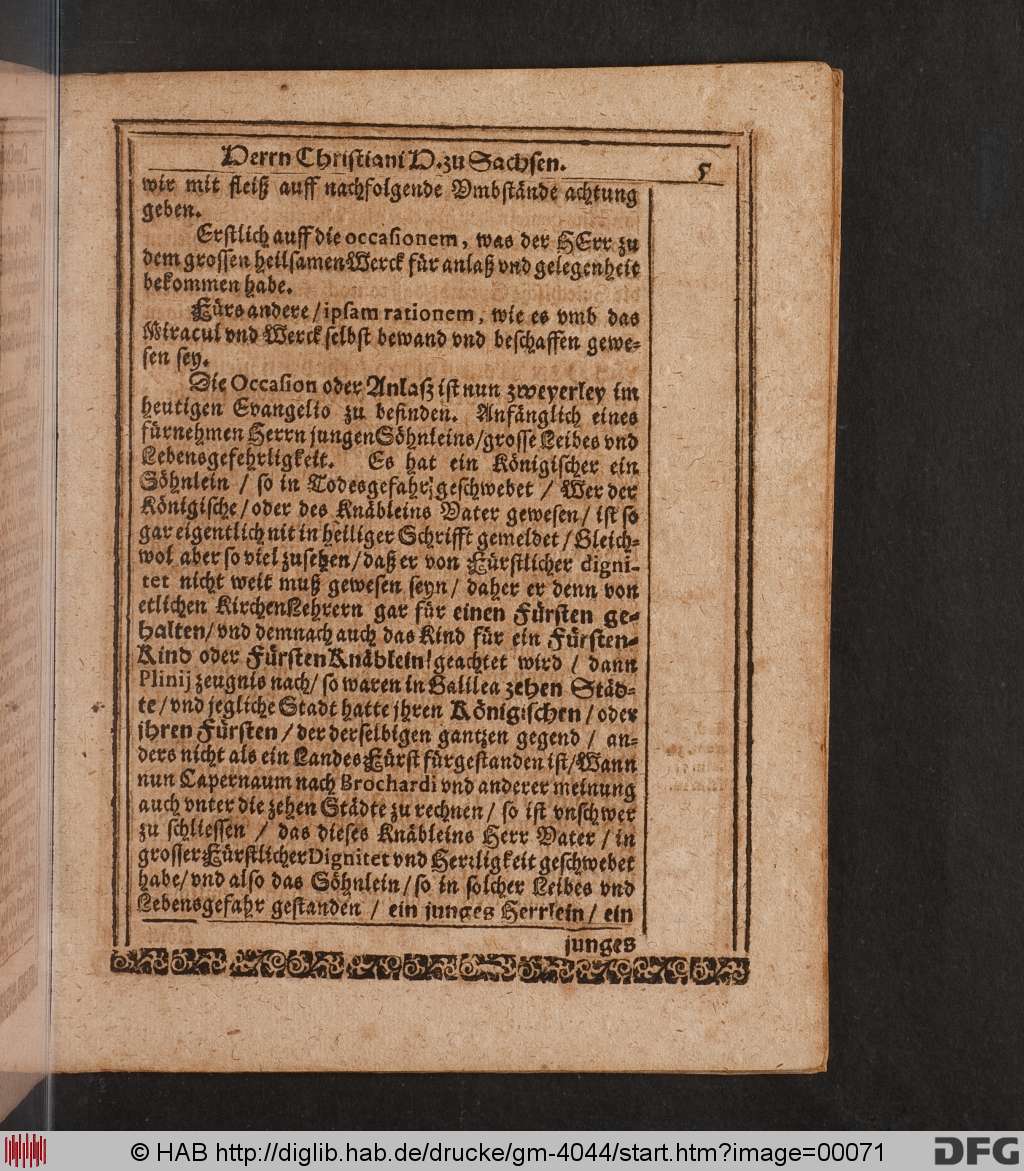 Herrn Christiani H. zu Sachsen. 5
wir mit fleiß auff nachfolgende Vmbstände achtung
geben.
Erstlich auff die occasionem, was der HErr zu
dem grossen heilsamen Werck für anlaß vnd gelegenheit
bekommen habe.
Fürs andere / ipsam rationem, wie es vmb das
Miracul vnd Werck selbst bewand vnd beschaffen gewe-
sen sey.
Die Occasion oder Anlaß ist nun zweyerley im
heutigen Evangelio zu befinden. Anfänglich eines
fürnehmen Herrn jungen Söhnleins / grosse Leibes vnd
Lebensgefehrligkeit. Es hat ein Königischer ein
Söhnlein / so in Todesgefahr geschwebet / Wer der
Königische / oder des Knäbleins Vater gewesen / ist so
gar eigentlich nit in heiliger Schrifft gemeldet / Gleich-
wol aber so viel zusetzen / daß er von Fürstlicher digni-
tet nicht weit muß gewesen seyn / daher er denn von
etlichen KirchenLehrern gar für einen Fürsten ge-
halten / vnd demnach auch das Kind für ein Fürsten-
Kind oder FürstenKnäblein geachtet wird / dann
Plinij zeugnis nach / so waren in Galilea zehen Städ-
te / vnd jegliche Stadt hatte jhren Königischen / oder
jhren Fürsten / der derselbigen gantzen gegend / an-
ders nicht als ein LandesFürst fürgestanden ist / Wann
nun Capernaum nach Brochardi vnd anderer meinung
auch vnter die zehen Städte zu rechnen / so ist vnschwer
zu schliessen / das dieses Knäbleins Herr Vater / in
grosser Fürstlicher Dignitet vnd Herrligkeit geschwebet
habe / vnd also das Söhnlein / so in solcher Leibes vnd
Lebensgefahr gestanden / ein junges Herrlein / ein
junges
© HAB http://diglib.hab.de/drucke/gm-4044/start.htm?image=00071 DFG